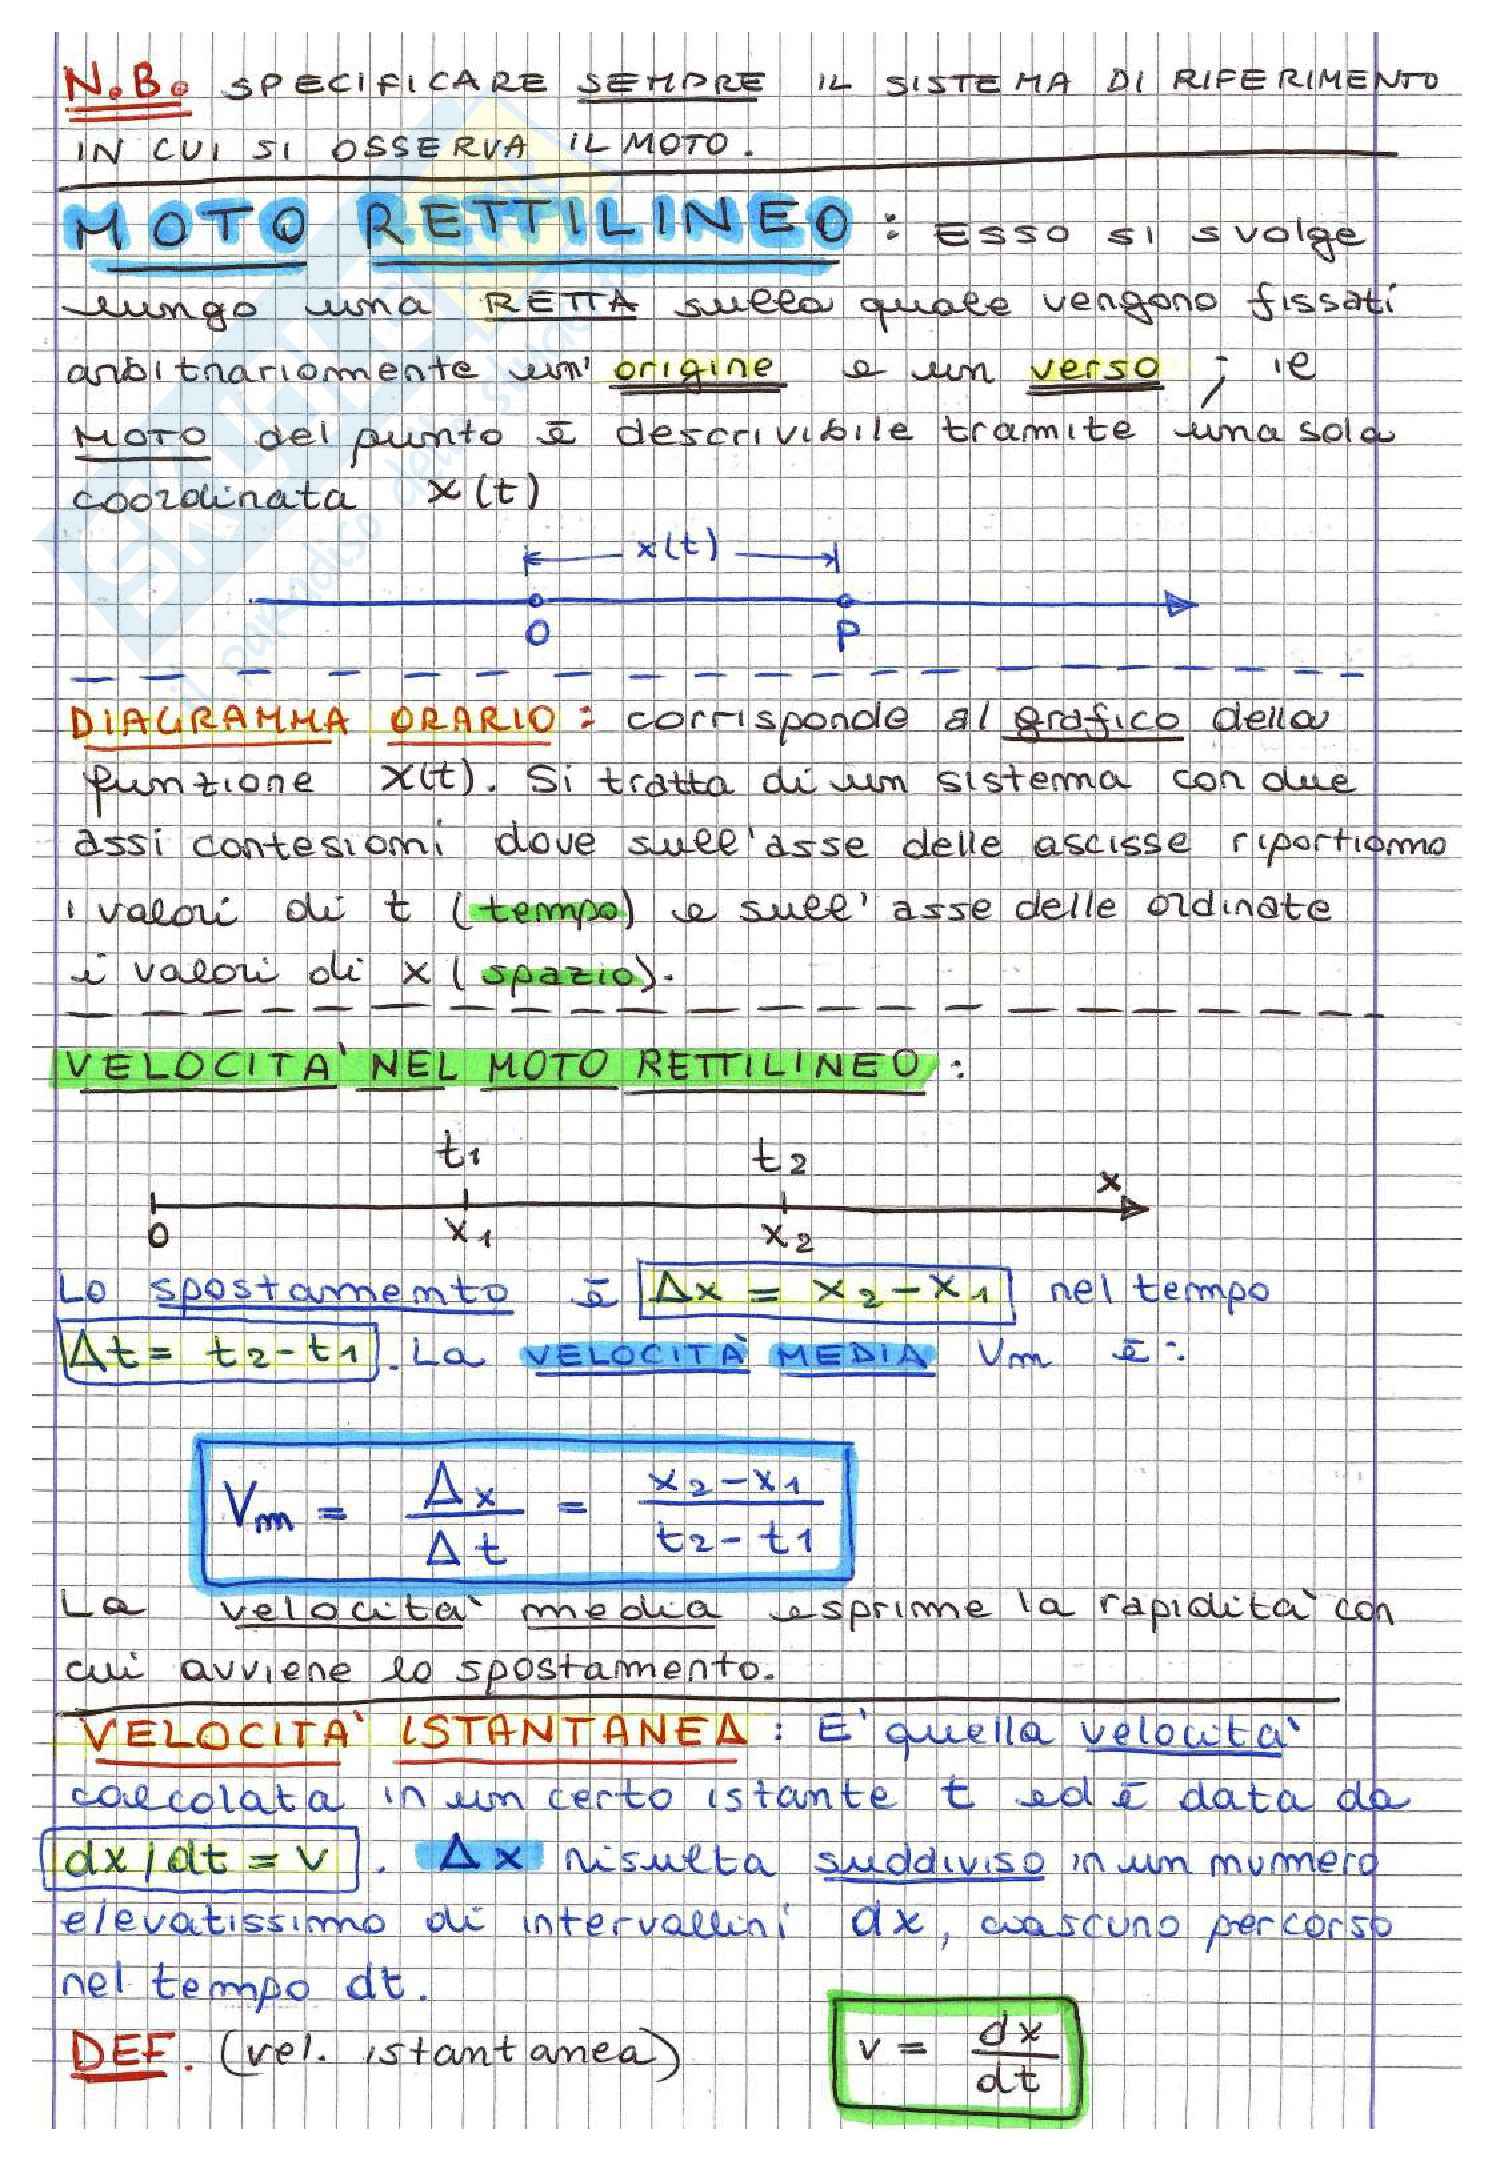 N.B. SPECIFICARE SEMPRE IL SISTEMA DI RIFERIMENTO
IN CUI SI OSSERVA IL MOTO.
MOTO RETTILINEO : Esso si svolge
lungo una RETTA sulla quale vengono fissati
arbitrariamente un' origine e un verso ; il
MOTO del punto è descrivibile tramite una sola
coordinata x(t)
x(t)
O P
DIAGRAMMA ORARIO : corrisponde al grafico della
funzione x(t). Si tratta di un sistema con due
assi cartesiani dove sull'asse delle ascisse riportiamo
i valori di t (tempo) e sull'asse delle ordinate
i valori di x (spazio).
VELOCITA' NEL MOTO RETTILINEO :
t1 t2
x
O x1 x2
Lo spostamento è Δx = x2-x1 nel tempo
Δt = t2-t1. La VELOCITÀ MEDIA Vm è :
Vm = Δx/Δt = x2-x1/t2-t1
La velocita' media esprime la rapidita' con
cui avviene lo spostamento.
VELOCITA' ISTANTANEA : E' quella velocita'
calcolata in un certo istante t ed è data da
dx/dt = v . Δx risulta suddiviso in un numero
elevatissimo di intervallini dx, ciascuno percorso
nel tempo dt.
DEF. (vel. istantanea) v = dx/dt